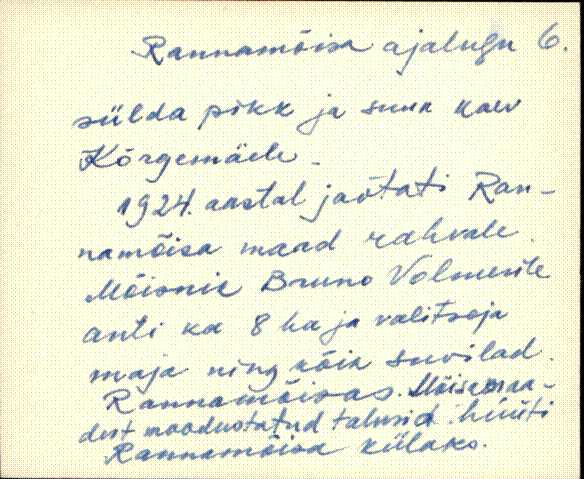 Rannamõisa ajalugu 6.
sülda pikk ja suur kaev
Kõrgemäele.
1924. aastal jaotati Ran-
namõisa maad rahvale.
Mõisnik Bruno Volmerile
anti ka 8 ha ja valitseja
maja ning kõik suvilad
Rannamõisas. Mõisamaa-
dest moodustatud talusid hüüti
Rannamõisa külaks.